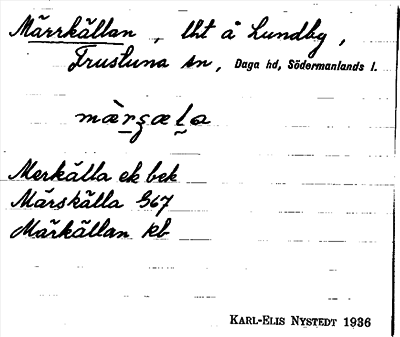 Märrkällan, lht å Lundby,
Frustuna sn, Daga hd, Södermanlands l.
Merkälla ek bek
Märskälla 567
Märkällan kb
KARL-ELIS NYSTEDT 1936